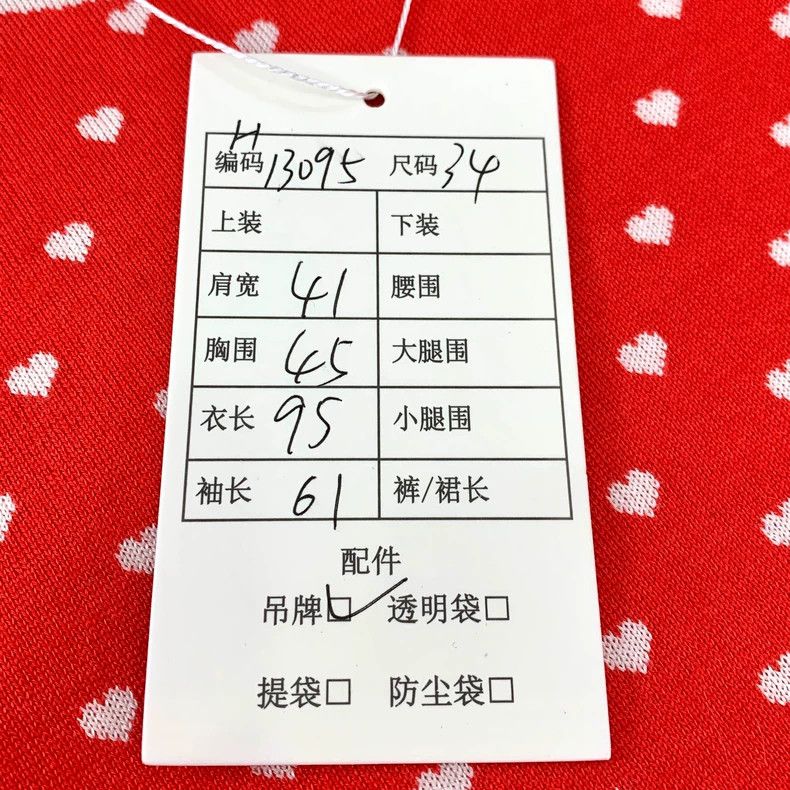 编码 H13095 尺码 34
上装 下装
肩宽 41 腰围
胸围 45 大腿围
衣长 95 小腿围
袖长 61 裤/裙长
配件
吊牌☑ 透明袋□
提袋□ 防尘袋□